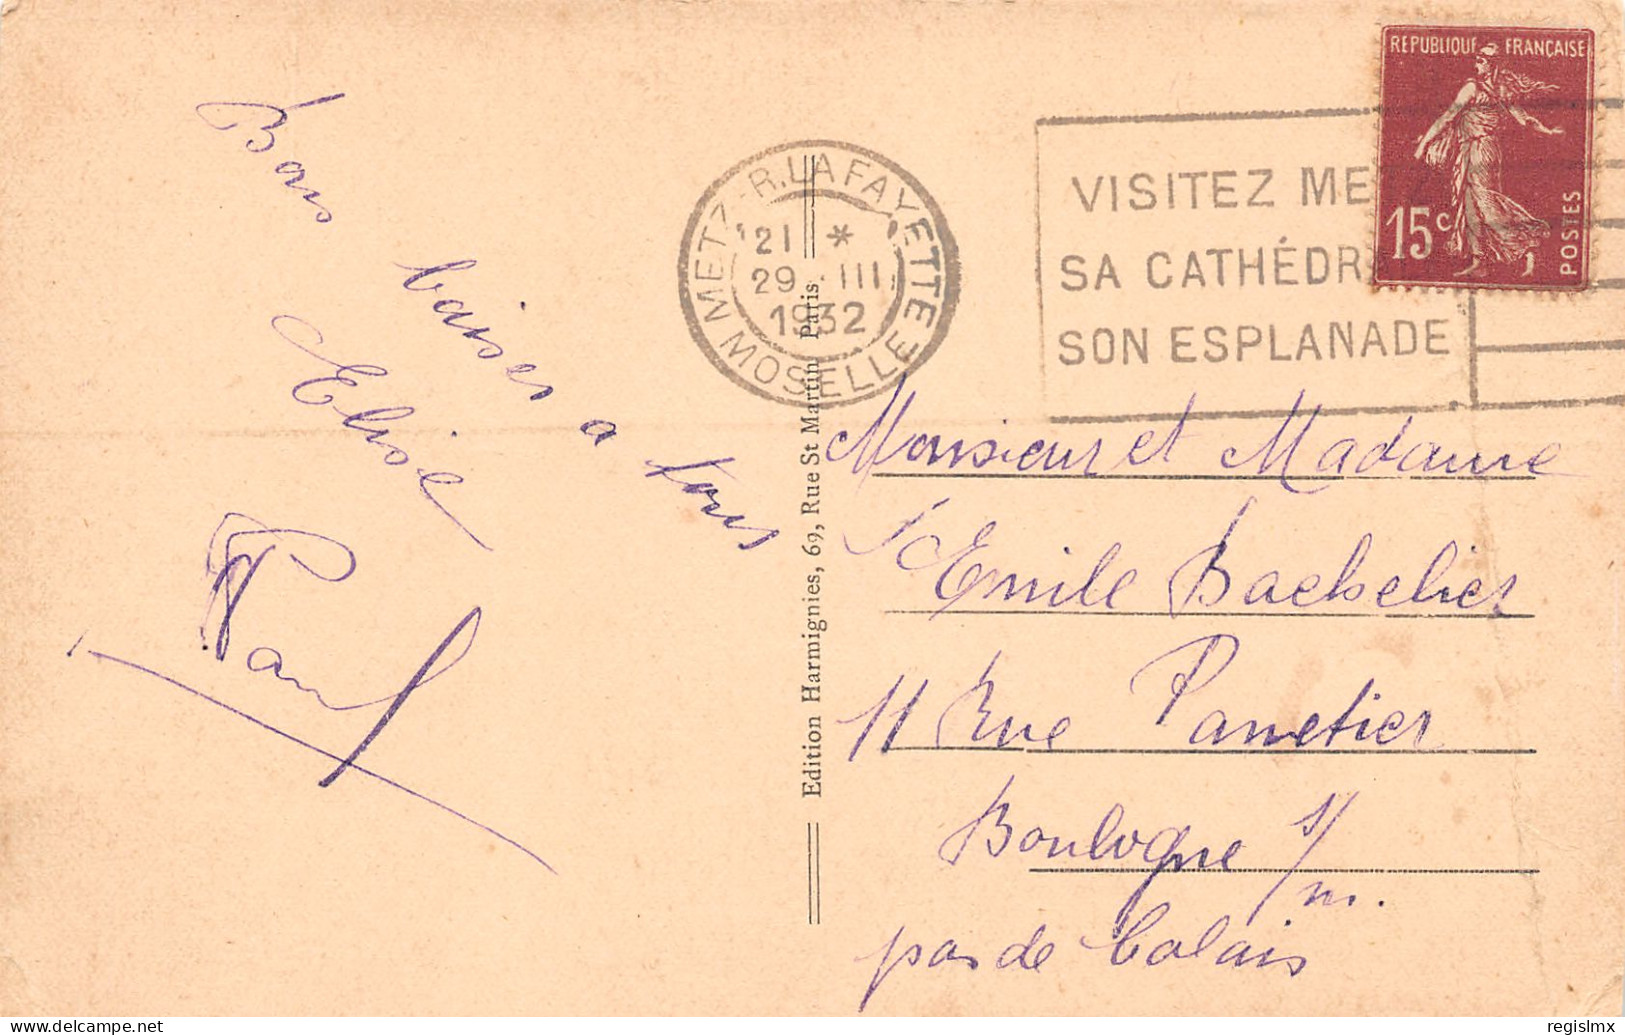 Bons baisers a tous
Elisie
Paul
REPUBLIQUE FRANÇAISE
15c
POSTES
METZ-R. LAFAYETTE
MOSELLE
21 *
29 . III
1932
VISITEZ ME
SA CATHÉDR
SON ESPLANADE
Edition Harmignies, 69, Rue St Martin Paris.
Monsieur et Madame
Emile Bachelier
11 Rue Panetier
Boulogne s/m.
pas de Calais
delcampe.net
regislmx